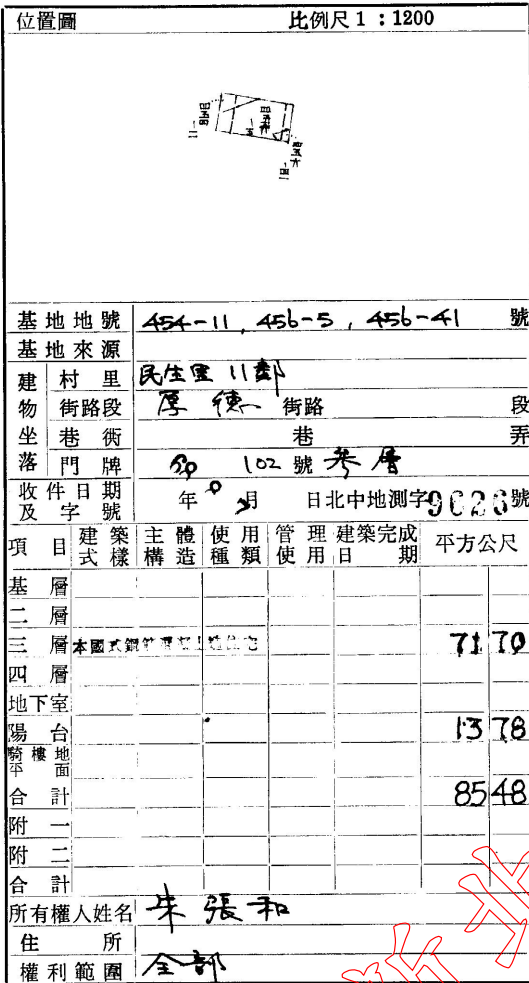 位置圖 比例尺 1 : 1200
基地地號 454-11, 456-5, 456-41 號
基地來源
建物坐落 村里 民生里 11鄰
街路段 厚德 街路 段
巷衖 巷 弄
門牌 102 號 参層
收件日期及字號 年 月 日北中地測字9626號
項目 建築式樣 主體構造 使用種類 管理使用 建築完成日期 平方公尺
基層
二層
三層 本國式鋼筋混凝土造住宅 71 70
四層
地下室
陽台 13 78
騎樓地平面
合計 85 48
附一
附二
合計
所有權人姓名 朱張和
住所
權利範圍 全部